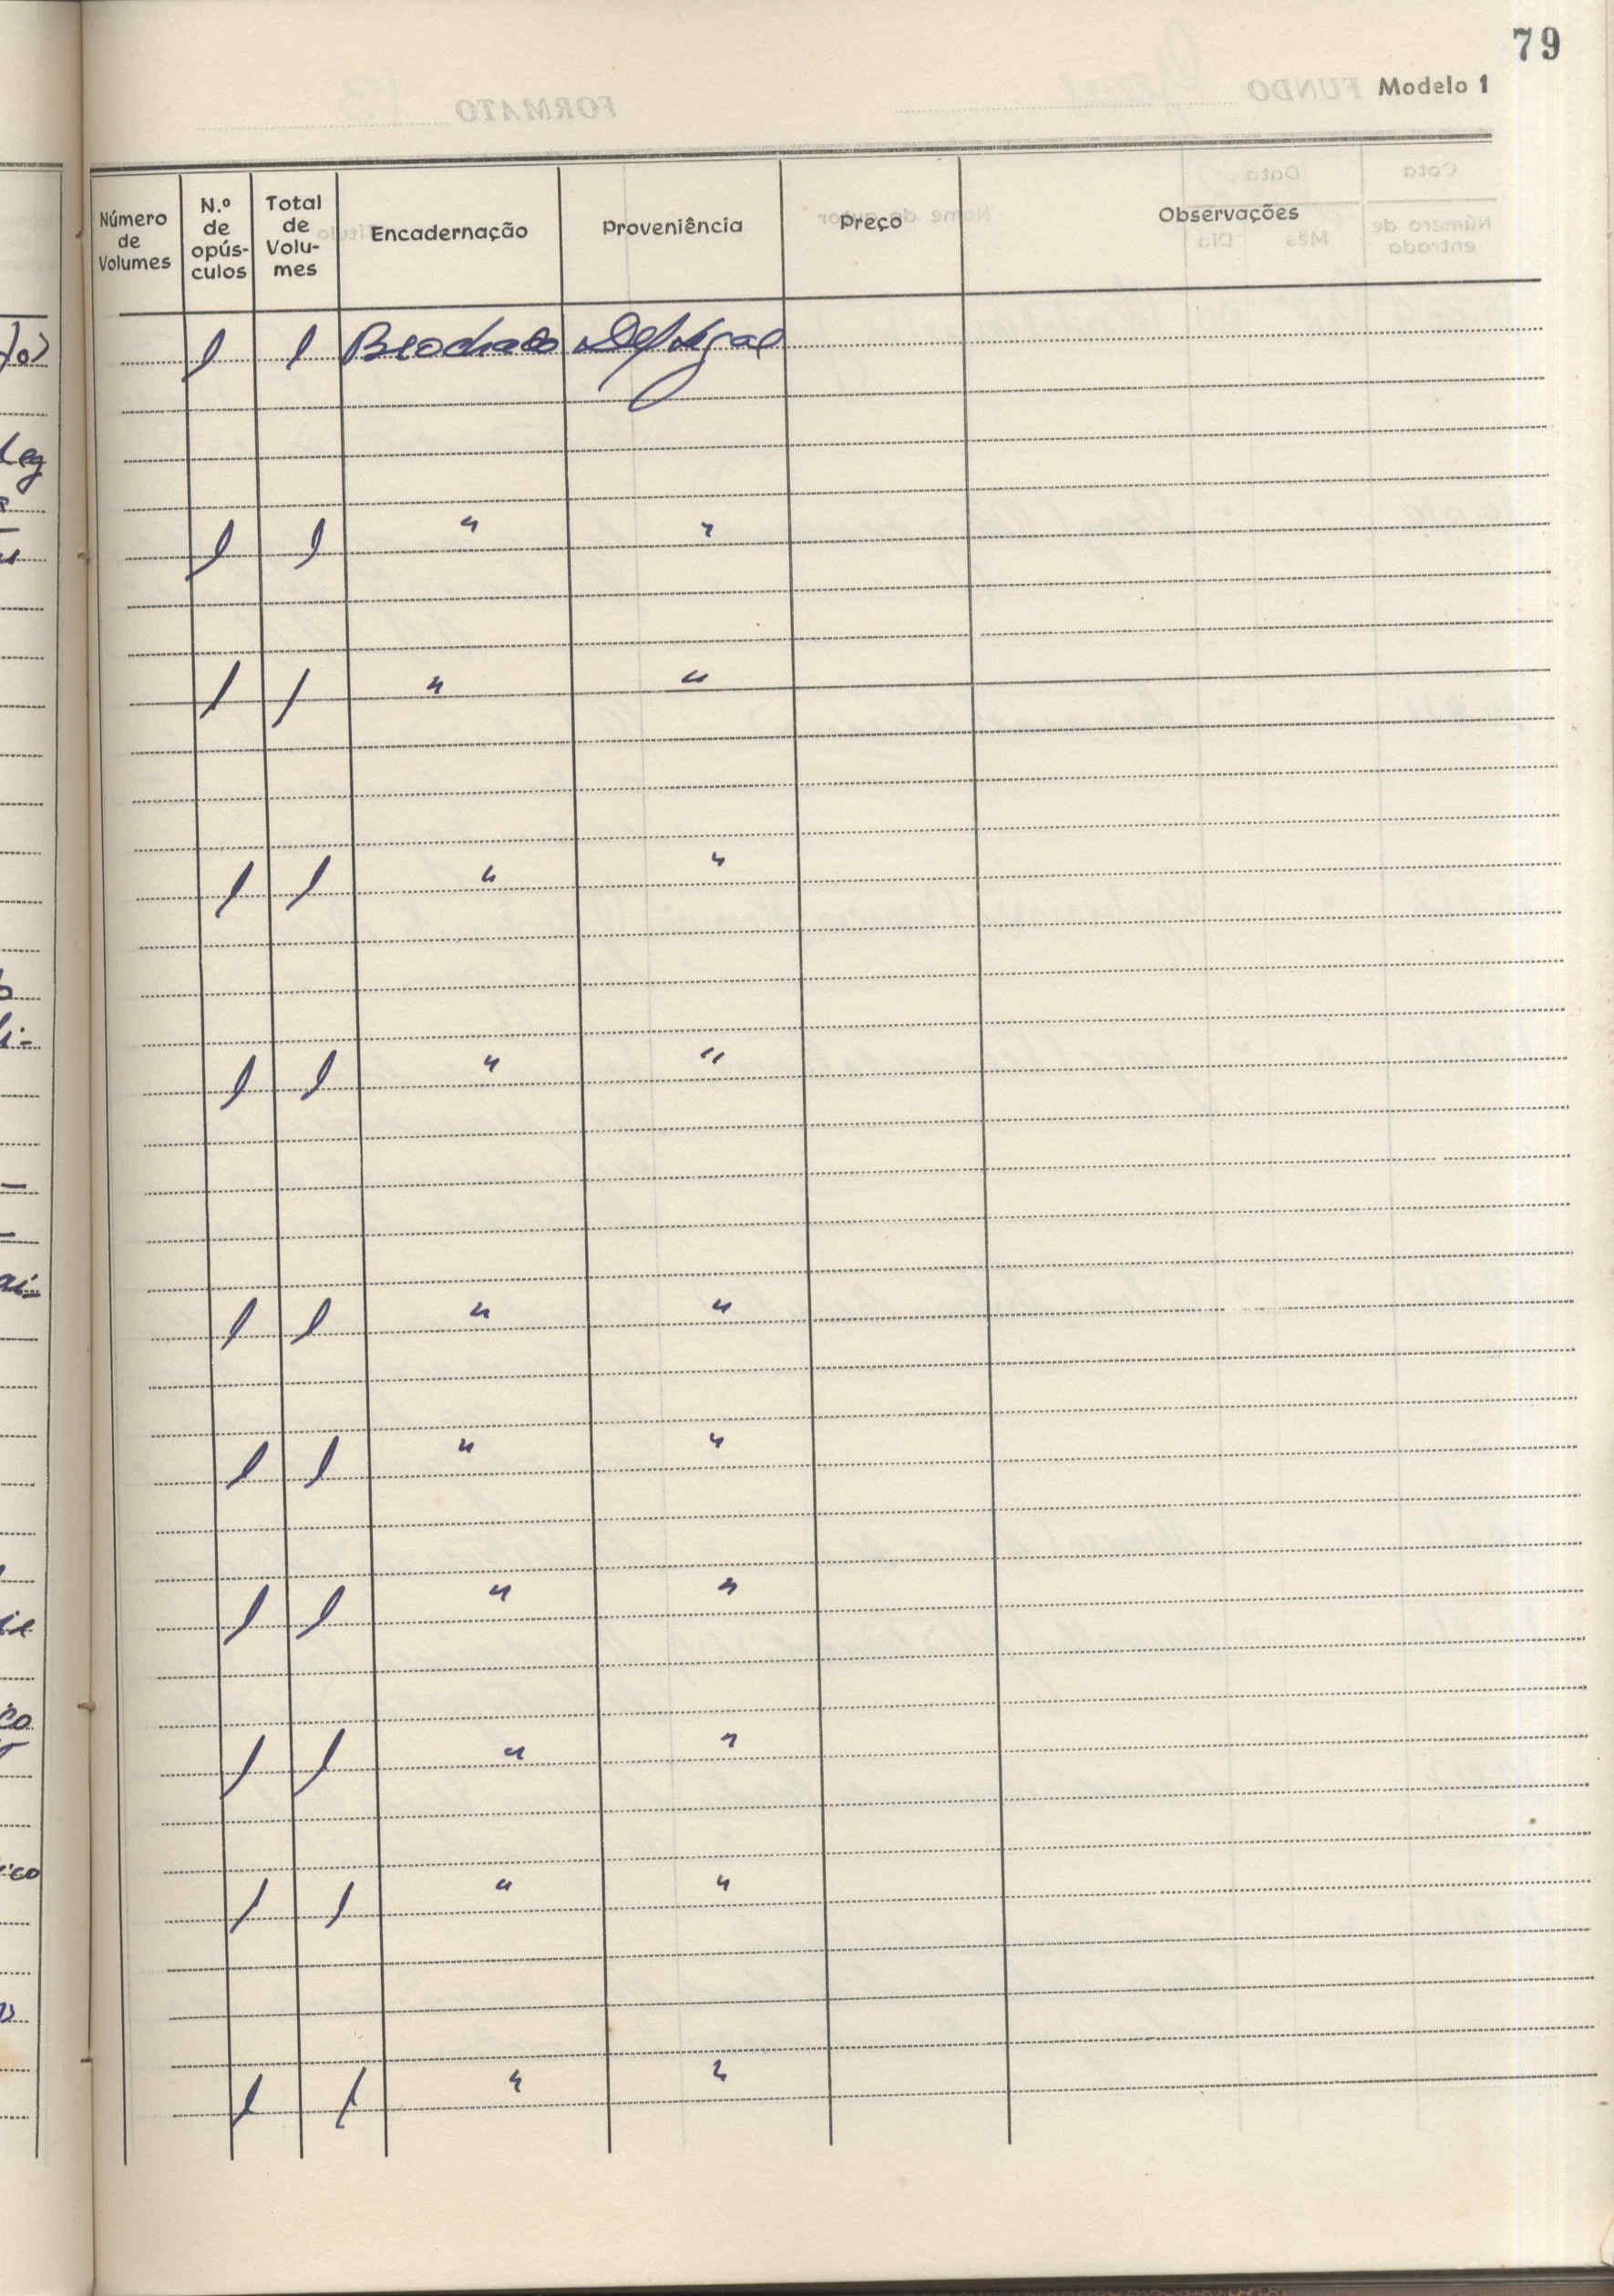 79
Modelo 1
Número de Volumes
N.º de opús- culos
Total de Volu- mes
Encadernação
Proveniência
Preço
Observações
1 1 Brochado Dep. Legal
1 1 " "
1 1 " "
1 1 " "
1 1 " "
1 1 " "
1 1 " "
1 1 " "
1 1 " "
1 1 " "
1 1 " "